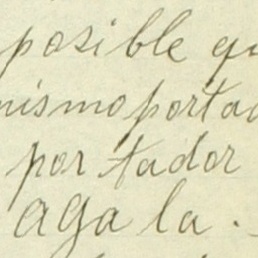 posible qu
mismo portad
por tador
aga la.